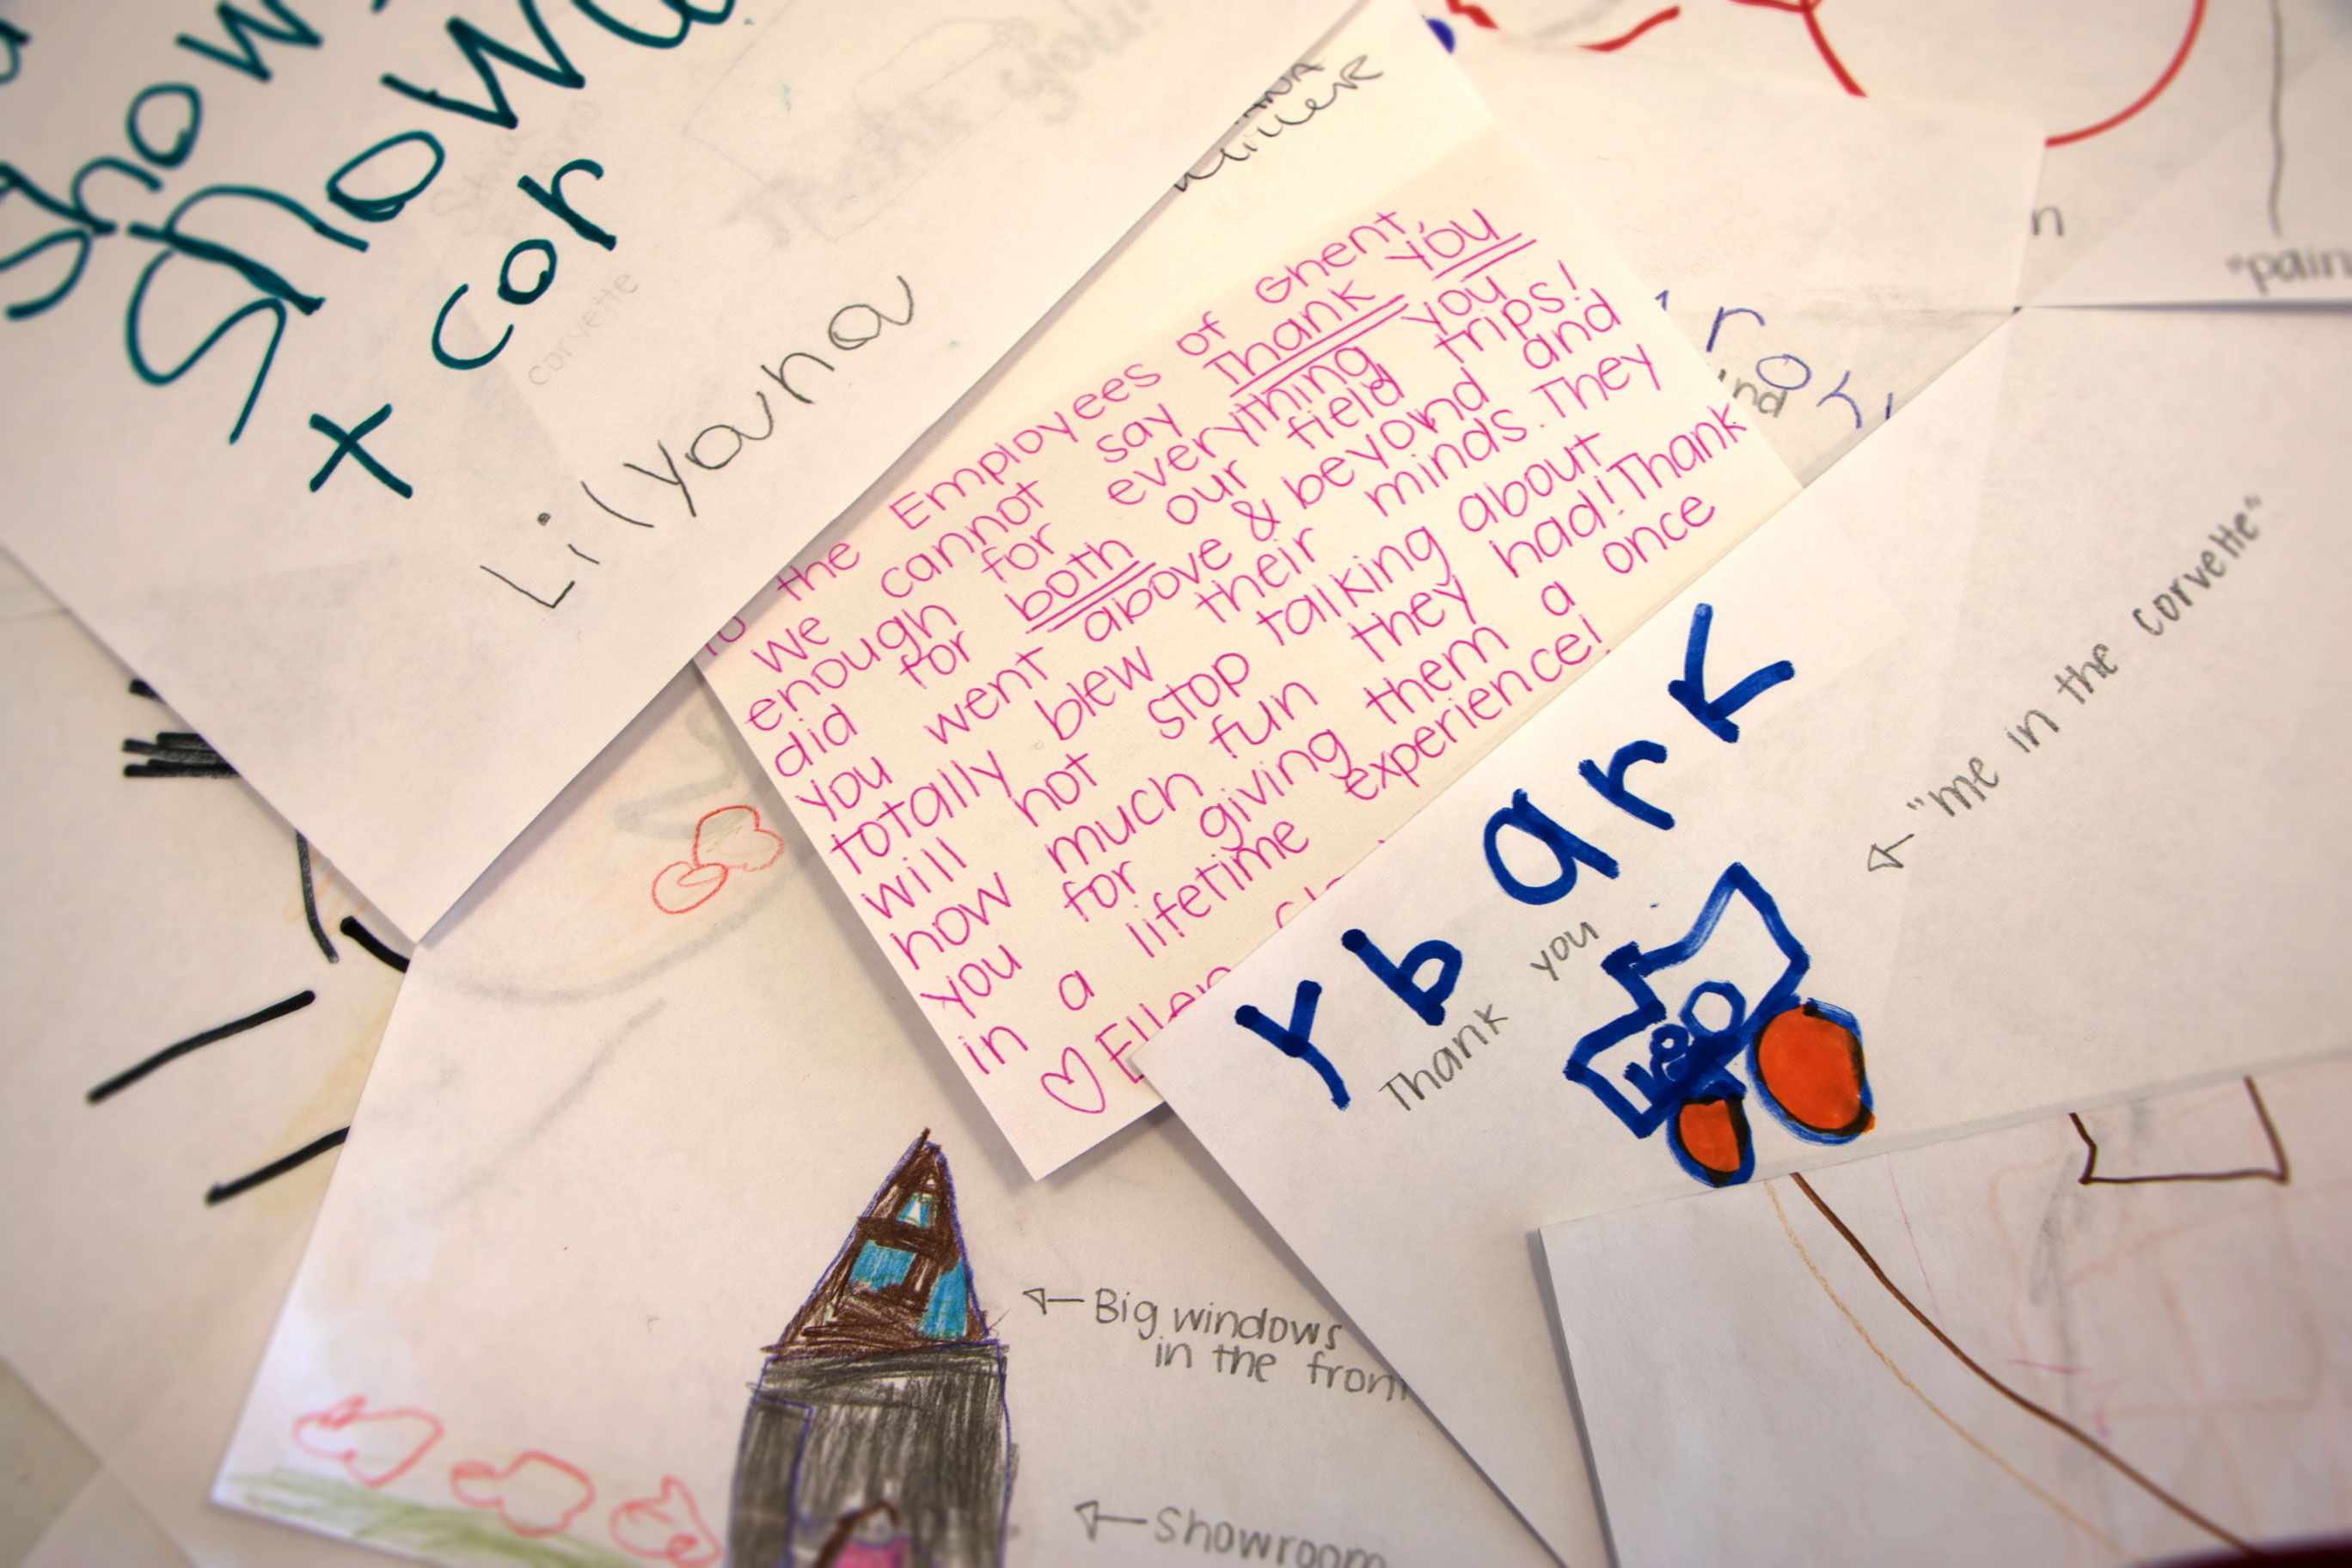 show
+ cor
corvette
Lilyauna
To the Employees of Ghent,
We cannot say Thank you
enough for everything you
did for both our field trips!
you went above & beyond and
totally blew their minds. They
will not stop talking about
how much fun they had! Thank
you for giving them a once
in a lifetime experience!
♡ Ellen
n
"pain
YbarK
Thank you
"me in the corvette"
Big windows
in the front
Showroom